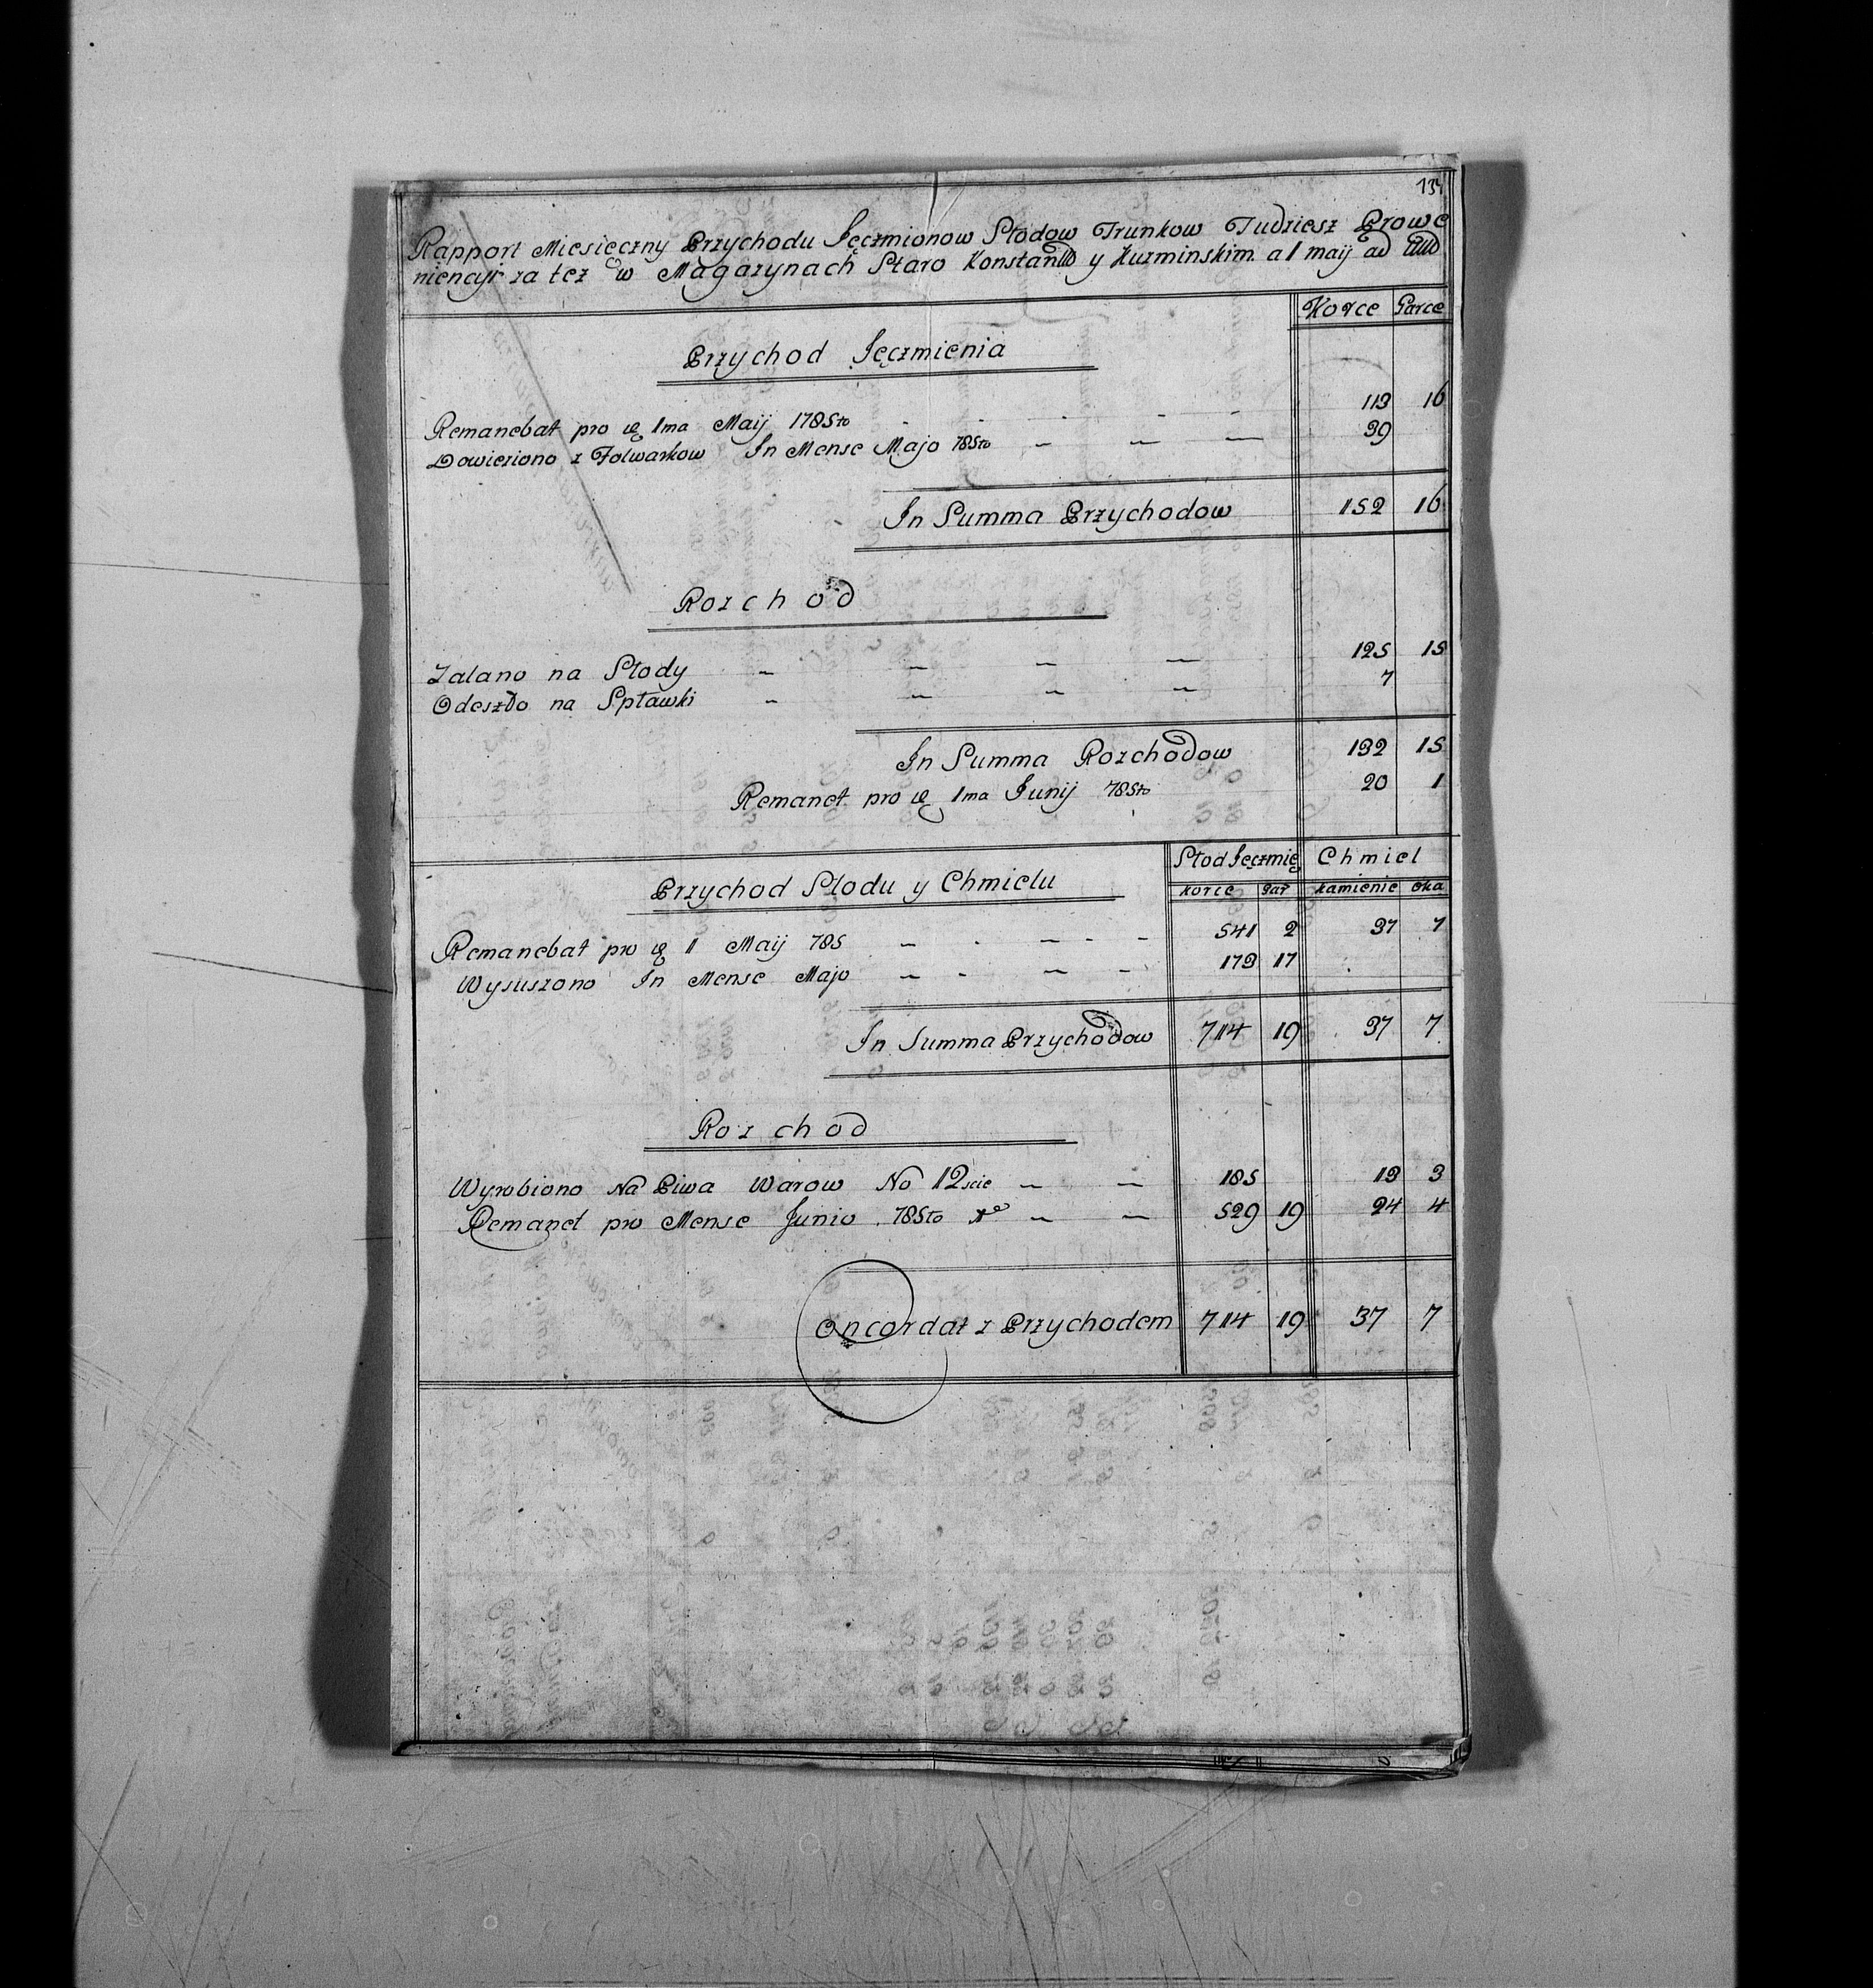 137
Rapport Miesięczny Przychodu Jęczmionow Słodow Trunkow Tudziesz Prowe
niencyi za tez w Magazynach Staro Konstan y Kuzminskim a 1 maij ad
Korce Garce
Przychod Jęczmienia
Remanebat pro 1ma Maij 1785to - - - - - 113 16
Dowieziono z Folwarkow In Mense Majo 785to - - - 39
In Summa Przychodow 152 16
Rozchod
Zalano na Słody - - - - 125 15
Odeszło na Spławki - - - - 7
In Summa Rozchodow 132 15
Remanet pro 1ma Junij 785to 20 1
Słod Jęczmię Chmiel
Przychod Słodu y Chmielu korce gar kamienie oka
Remanebat pro 1 Maij 785 - - - - - 541 2 37 7
Wysuszono In Mense Majo - - - - 173 17
In Summa Przychodow 714 19 37 7
Rozchod
Wyrobiono Na Piwa Warow No 12scie - - 185 13 3
Remanet pro Mense Junio 785to - - 529 19 24 4
Concordat z Przychodem 714 19 37 7